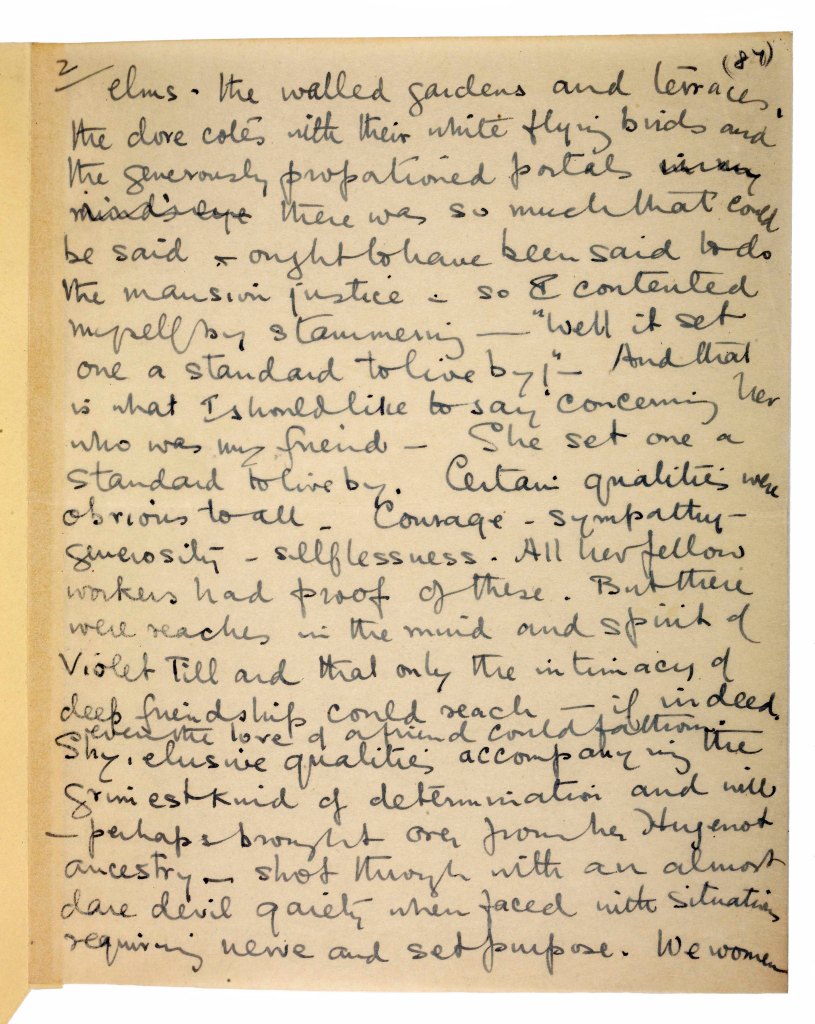 2/
(87)
elms - the walled gardens and terraces,
the dove cotes with their white flying birds and
the generously proportioned portals in my
mind's eye there was so much that could
be said - ought to have been said to do
the mansion justice - so I contented
myself by stammering — "Well it set
one a standard to live by!" - And that
is what I should like to say concerning her
who was my friend - She set one a
standard to live by. Certain qualities were
obvious to all - Courage - sympathy -
generosity - selflessness. All her fellow
workers had proof of these. But there
were reaches in the mind and spirit of
Violet Tillard that only the intimacy of
deep friendship could reach - if indeed
even the love of a friend could fathom.
Shy, elusive qualities accompanying the
grimest kind of determination and will
- perhaps brought over from her Hugenot
ancestry - shot through with an almost
dare devil gaiety when faced with situations
requiring nerve and set purpose. We women